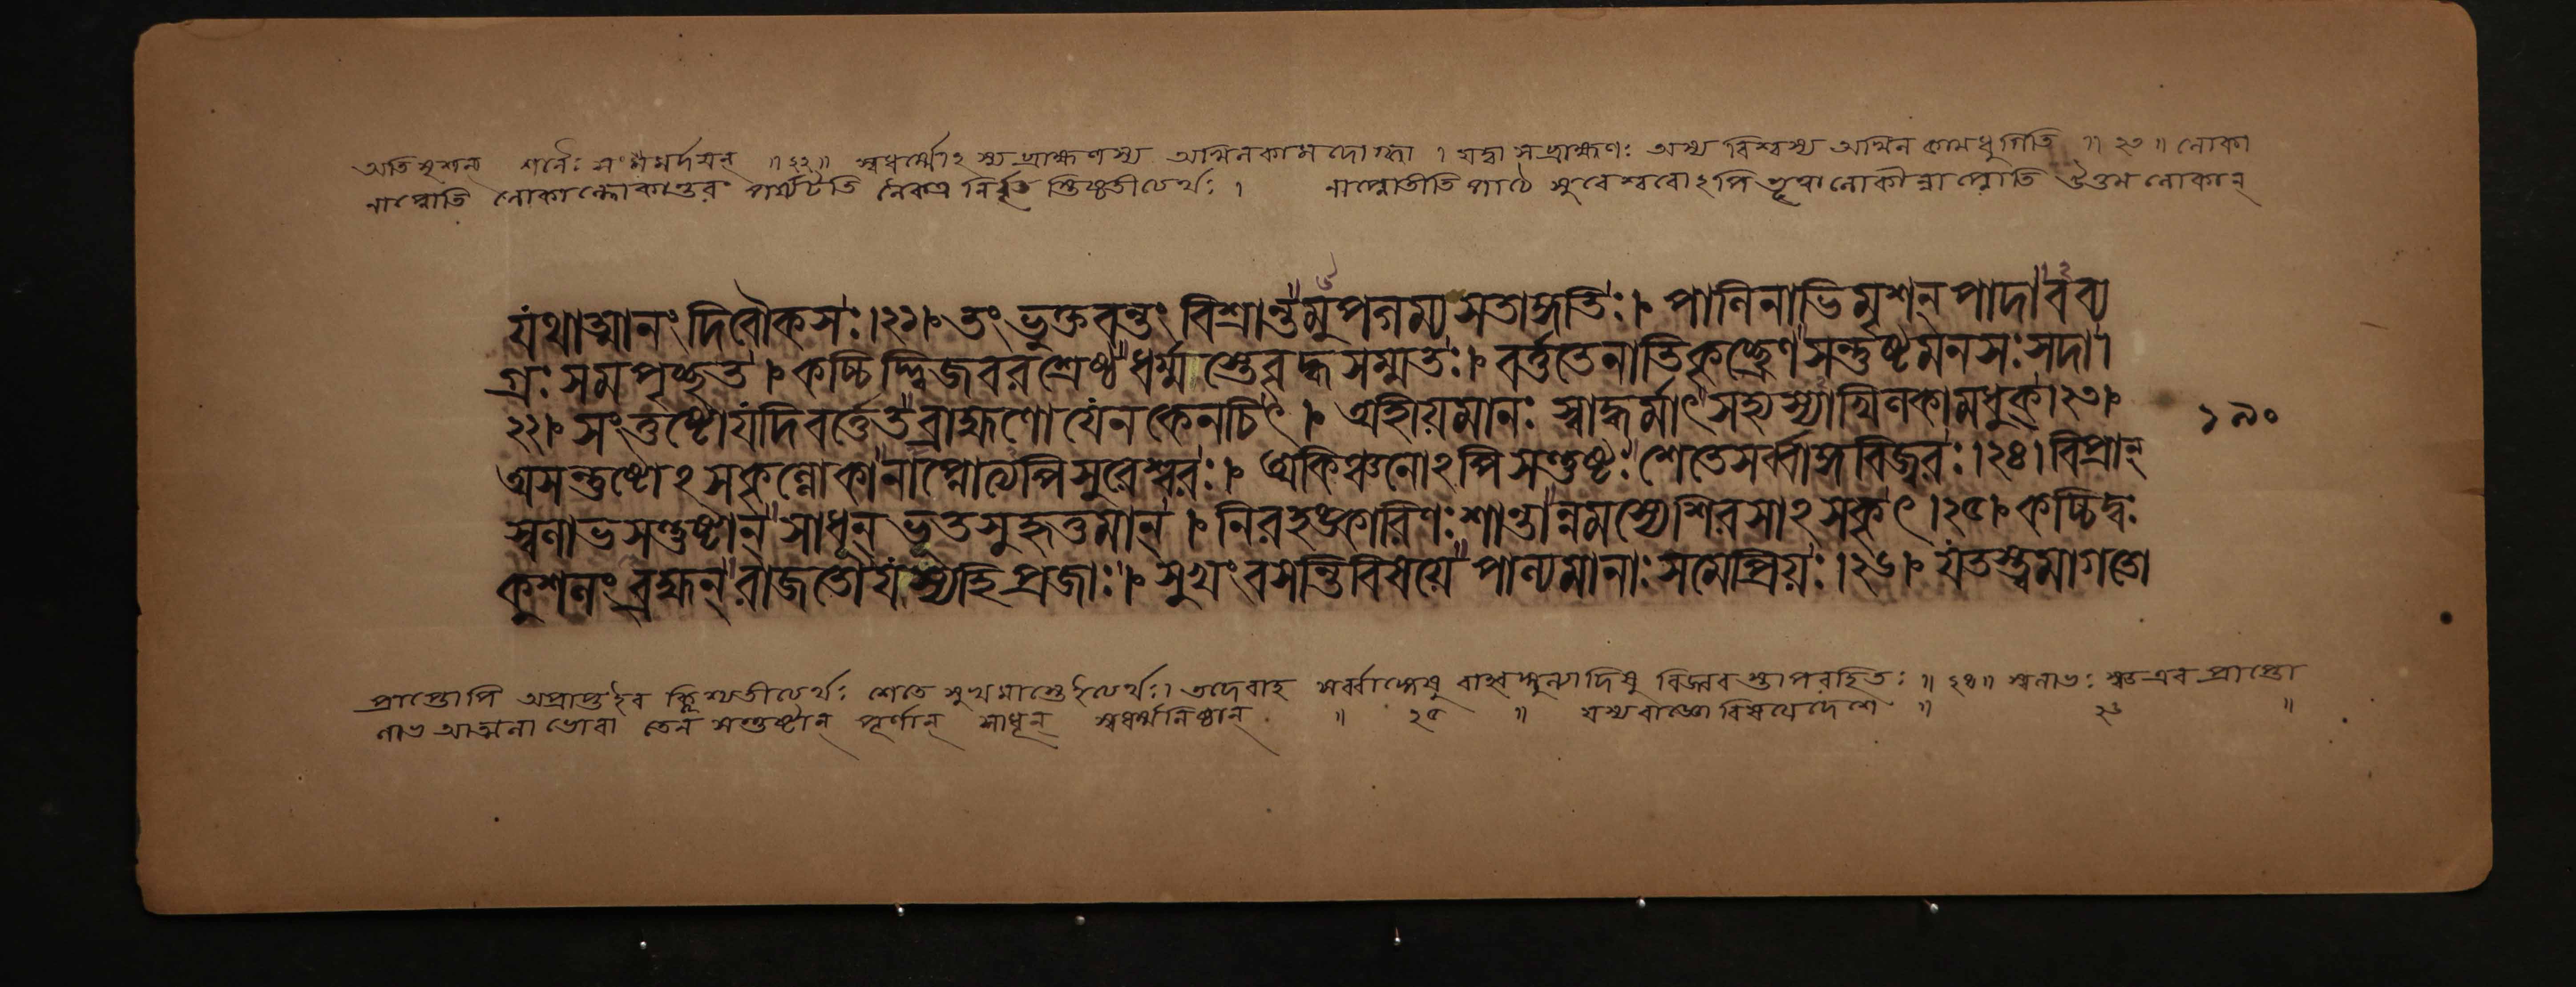 অতিমৃশন্ শনৈঃ সংমর্দয়ন্ ॥ ২২ ॥ স্বধর্ম্মোঽস্য ব্রাহ্মণস্য অখিলকামদোগ্ধা । যদ্বা স ব্রাহ্মণঃ অস্য বিশ্বস্য অখিল কামধুগিতি ॥ ২৩ ॥ লোকা
নাপ্নোতি লোকাল্লোকান্তরং পর্য্যটতি নৈকত্র নির্বৃত স্তিষ্ঠতীত্যর্থঃ । নাপ্নোতীতি পাঠে সুরেশ্বরোঽপি ভূত্বা লোকান্নাপ্নোতি উত্তম লোকান্
যথাত্মানং দিবৌকসঃ । ২১ । তং ভুক্তবন্তং বিশ্রান্তমুপগম্য সতাঙ্গতিঃ । পাণিনাভিমৃশন্ পাদাবব্য
গ্রঃ সমপৃচ্ছত । কচ্চিদ্দ্বিজবরশ্রেষ্ঠ ধর্ম্মস্তে বৃদ্ধসম্মতঃ । বর্ত্ততে নাতিকৃচ্ছ্রেণ সন্তুষ্টমনসঃ সদা ।
২২ । সংতুষ্টো যদি বর্ত্তেত ব্রাহ্মণো যেন কেনচিৎ । অহীয়মানঃ স্বাদ্ধর্ম্মাৎ সহ্যস্যাখিলকামধুক্ । ২৩ ।
অসন্তুষ্টোঽসকৃল্লোকানাপ্নোত্যপি সুরেশ্বরঃ । অকিঞ্চনোঽপি সন্তুষ্টঃ শেতে সর্ব্বাঙ্গবিজ্বরঃ । ২৪ । বিপ্রান্
স্বলাভসন্তুষ্টান্ সাধূন্ ভূতসুহৃত্তমান্ । নিরহঙ্কারিণঃ শান্তান্নমস্যে শিরসাঽসকৃৎ । ২৫ । কচ্চিদ্বঃ
কুশলং ব্রহ্মন্ রাজতো যস্য হি প্রজাঃ । সুখং বসন্তি বিষয়ে পাল্যমানাঃ স মে প্রিয়ঃ । ২৬ । যতস্ত্বমাগতো
১৯০
প্রাপ্তোপি অপ্রাপ্তইব ক্লিশ্যতীত্যর্থঃ শেতে সুখমাস্তে ইত্যর্থঃ । তদেবাহ সর্ব্বাঙ্গেষু বিজ্বরস্তাপরহিতঃ ॥ ২৪ ॥ স্বলাভঃ স্বত এব প্রাপ্তো
লাভ আত্মলাভোবা তেন সন্তুষ্টান্ পূর্ণান্ সাধূন্ স্বধর্ম্মনিষ্ঠান্ ॥ ২৫ ॥ যস্য রাজ্ঞো বিষয়ে দেশে ॥ ২৬ ॥